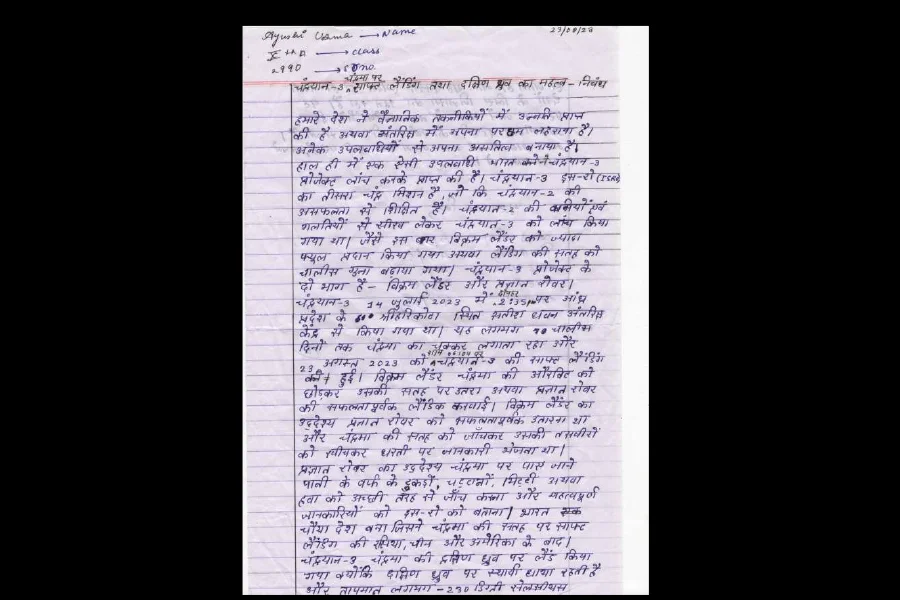 Ayushi Verma → Name 23/08/23
X th A → class
2990 → S.no.
चंद्रयान-3 चंद्रमा पर साफ्ट लैंडिंग तथा दक्षिण ध्रुव का महत्व - निबंध
हमारे देश ने वैज्ञानिक तकनीकियों में उन्नति प्राप्त
की है अथवा अंतरिक्ष में अपना परचम लहराया है।
अनेक उपलबाधियों से अपना असतित्व बनाया है।
हाल ही में एक ऐसी उपलबाधी भारत ने चंद्रयान-3
प्रोजेक्ट लांच करके प्राप्त की है। चंद्रयान-3 इस-रो (ISRO)
का तीसरा चंद्र मिशन है, जो कि चंद्रयान-2 की
असफलता से शिक्षित है। चंद्रयान-2 की कमीयों एवं
गलतियों से सीख लेकर चंद्रयान-3 को लांच किया
गया था। जैसे इस बार विक्रम लैंडर को ज्यादा
फ्यूल प्रदान किया गया अथवा लैंडिंग की सतह को
चालीस गुना बढ़ाया गया। चंद्रयान-3 प्रोजेक्ट के
दो भाग है - विक्रम लैंडर और प्रज्ञान रोवर।
चंद्रयान-3 14 जुलाई 2023 में दोपहर 2:35 पर आंध्र
प्रदेश के श्रीहरिकोटा स्थित सतीश धवन अंतरिक्ष
केंद्र से किया गया था। यह लगभग चालीस
दिनों तक चंद्रमा का चक्कर लगाता रहा और
23 अगस्त 2023 को शाम 06:04 पर चंद्रयान-3 की साफ्ट लैंडिंग
हुई। विक्रम लैंडर चंद्रमा की ऑरबिट को
छोड़कर उसकी सतह पर उतरा अथवा प्रज्ञान रोवर
की सफलतापूर्वक लैंडिंक करवाई। विक्रम लैंडर का
उद्देश्य प्रज्ञान रोवर को सफलतापूर्वक उतारना था
और चंद्रमा की सतह को जाँचकर उसकी तसवीरों
को खीचकर धरती पर जानकारी भेजना था।
प्रज्ञान रोवर का उद्देश्य चंद्रमा पर पाए जाने
पानी के बर्फ के टुकड़ों, चट्टानों, मिट्टी अथवा
हवा को अच्छी तरह से जाँच करना और महत्वपूर्ण
जानकारियों को इस-रो को बताना। भारत एक
चौथा देश बना जिसने चंद्रमा की सतह पर साफ्ट
लैंडिंग की रूषिया, चीन और अमेरिका के बाद।
चंद्रयान-3 चंद्रमा की दक्षिण ध्रुव पर लैंड किया
गया क्योंकि दक्षिण ध्रुव पर स्थायी छाया रहती है
और तापमान लगभग -230 डिग्री सेलसीयस